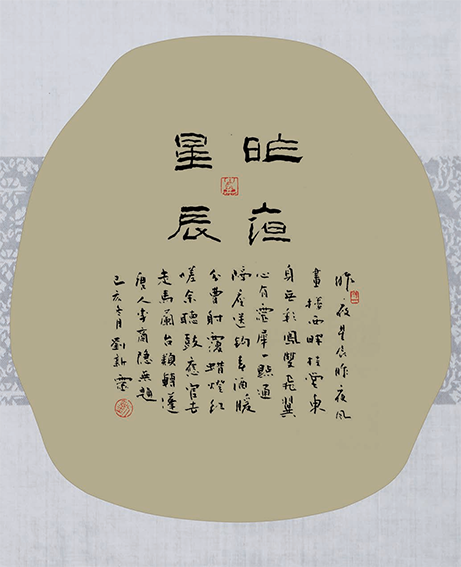 昨夜
星辰
昨夜星辰昨夜風
畫楼西畔桂堂東
身無彩鳳雙飛翼
心有靈犀一點通
隔座送鈎春酒暖
分曹射覆蠟燈红
嗟余聽鼓應官去
走馬蘭台類轉蓬
唐人李商隐無題
己亥冬月劉新